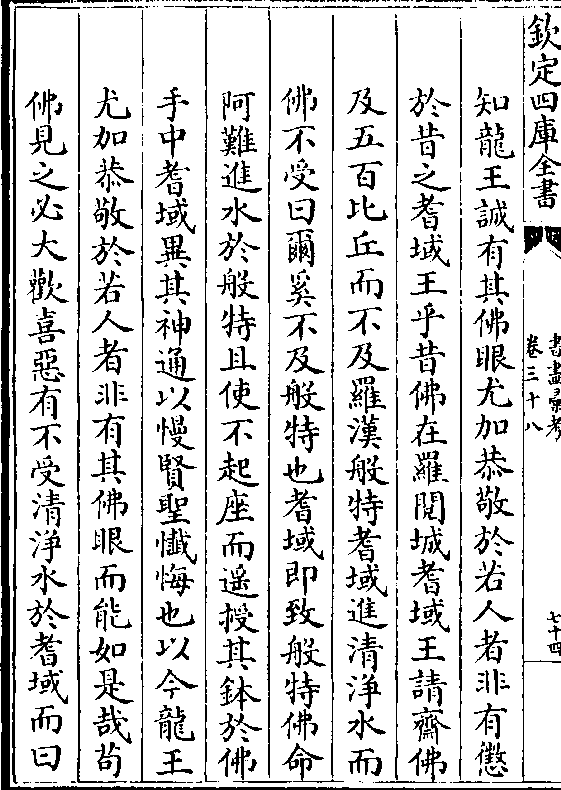 欽定四庫全書
書畫彙考
卷三十八
七十四
知龍王誠有其佛眼尤加恭敬於若人者非有懲
於昔之耆域王乎昔佛在羅閱城耆域王請齋佛
及五百比丘而不及羅漢般特耆域進清淨水而
佛不受曰爾奚不及般特也耆域即致般特佛命
阿難進水於般特且使不起座而遥授其鉢於佛
手中耆域異其神通以慢賢聖懺悔也以今龍王
尤加恭敬於若人者非有其佛眼而能如是哉茍
佛見之必大歡喜惡有不受清淨水於耆域而曰